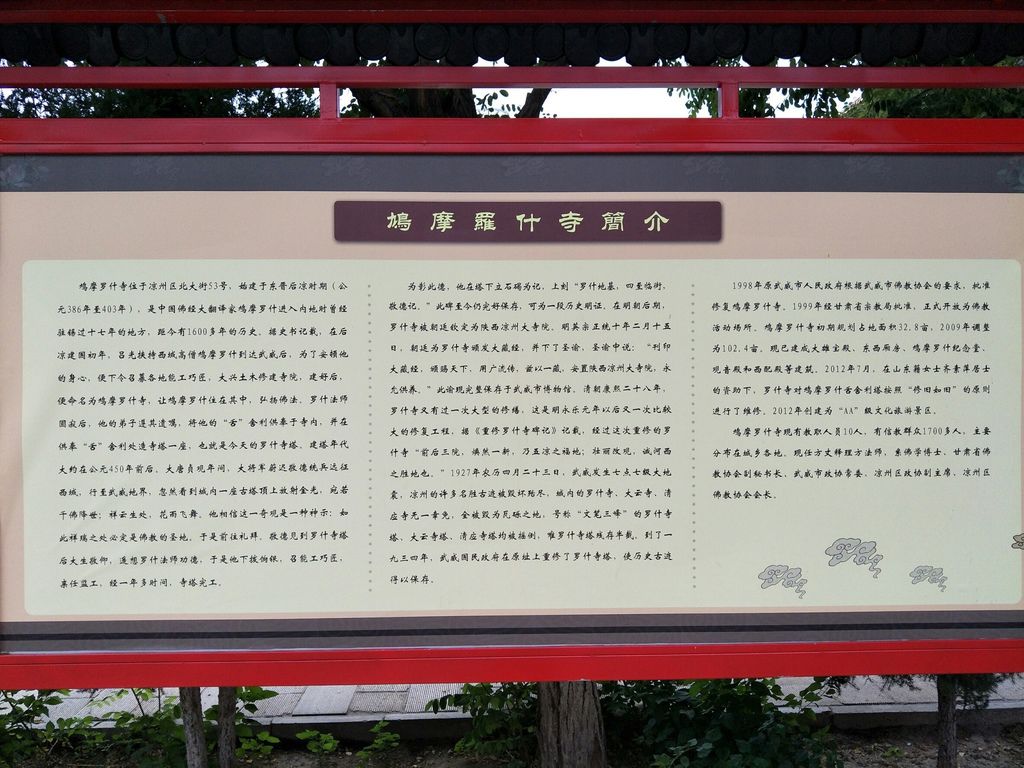 鳩摩羅什寺簡介
鸠摩罗什寺位于凉州区北大街53号，始建于东晋后凉时期（公
元386年至403年），是中国佛经大翻译家鸠摩罗什进入内地时曾经
驻锡过十七年的地方，距今有1600多年的历史。据史书记载，在后
凉建国初年，吕光扶持西域高僧鸠摩罗什到达武威后，为了安顿他
的身心，便下令召募各地能工巧匠，大兴土木修建寺院，建好后，
便命名为鸠摩罗什寺，让鸠摩罗什住在其中，弘扬佛法。罗什法师
圆寂后，他的弟子遵其遗嘱，将他的“舌”舍利供奉于寺内，并在
供奉“舌”舍利处造寺塔一座，也就是今天的罗什寺塔。建塔年代
大约在公元450年前后。大唐贞观年间，大将军尉迟敬德统兵远征
西域，行至武威地界，忽然看到城内一座古塔顶上放射金光，宛若
千佛降世；祥云生处，花雨飞舞。他相信这一奇观是一种神示：如
此祥瑞之处必定是佛教的圣地。于是前往礼拜。敬德见到罗什寺塔
后大生敬仰，遥想罗什法师功德，于是他下拨饷银，召能工巧匠，
亲任监工，经一年多时间，寺塔完工。
为彰此德，他在塔下立石碣为记，上刻“罗什地基，四至临街，
敬德记。”此碑至今仍完好保存，可为一段历史明证。在明朝后期，
罗什寺被朝廷钦定为陕西凉州大寺院。明英宗正统十年二月十五
日，朝廷为罗什寺颁发大藏经，并下了圣谕，圣谕中说：“刊印
大藏经，颁赐天下，用广流传，兹以一藏，安置陕西凉州大寺院，永
充供养。”此谕现完整保存于武威市博物馆。清朝康熙二十八年，
罗什寺又有过一次大型的修缮，这是明永乐元年以后又一次比较
大的修复工程，据《重修罗什寺碑记》记载，经过这次重修的罗
什寺“前后三院，焕然一新，乃五凉之福地；壮丽改观，诚河西
之胜地也。”1927年农历四月二十三日，武威发生七点七级大地
震，凉州的许多名胜古迹被毁坏殆尽，城内的罗什寺、大云寺、清
应寺无一幸免，全被毁为瓦砾之地，号称“文笔三峰”的罗什寺
塔、大云寺塔、清应寺塔均被摇倒，唯罗什寺塔残存半截。到了一
九三四年，武威国民政府在原址上重修了罗什寺塔，使历史古迹
得以保存。
1998年原武威市人民政府根据武威市佛教协会的要求，批准
修复鸠摩罗什寺。1999年经甘肃省宗教局批准，正式开放为佛教
活动场所。鸠摩罗什寺初期规划占地面积32.8亩，2009年调整
为102.4亩。现已建成大雄宝殿、东西厢房、鸠摩罗什纪念堂、
观音殿和西配殿等建筑。2012年7月，在山东籍女士齐素萍居士
的资助下，罗什寺对鸠摩罗什舌舍利塔按照“修旧如旧”的原则
进行了维修。2012年创建为“AA”级文化旅游景区。
鸠摩罗什寺现有教职人员10人，有信教群众1700多人，主要
分布在城乡各地。现任方丈释理方法师，系佛学博士、甘肃省佛
教协会副秘书长、武威市政协常委、凉州区政协副主席、凉州区
佛教协会会长。